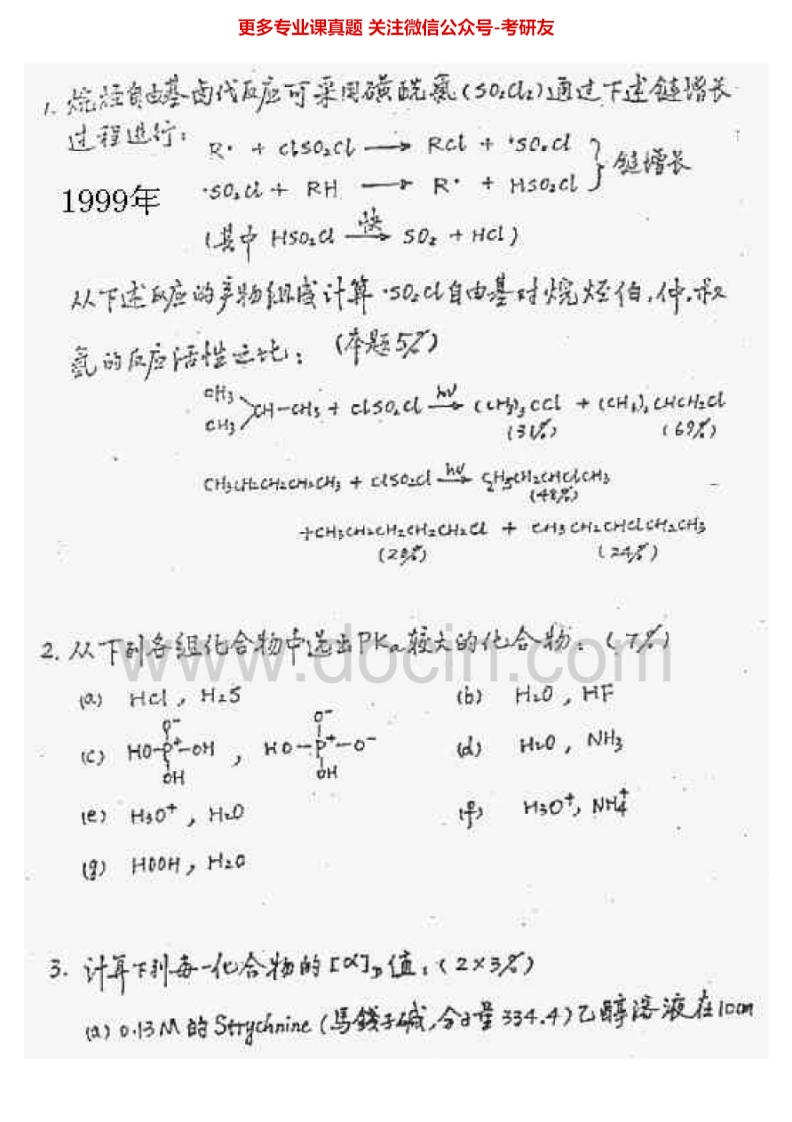 更多专业课真题 关注微信公众号-考研友
1. 烷烃自由基卤代反应可采用磺酰氯(SO₂Cl₂)通过下述链增长
过程进行:
R· + ClSO₂Cl ⟶ RCl + ·SO₂Cl
链增长
1999年
·SO₂Cl + RH ⟶ R· + HSO₂Cl
(其中 HSO₂Cl 快⟶ SO₂ + HCl)
从下述反应的产物组成计算 ·SO₂Cl自由基对烷烃伯,仲,叔
氢的反应活性之比: (本题5%)
CH₃
CH₃
CH-CH₃ + ClSO₂Cl hν⟶ (CH₃)₃CCl + (CH₃)₂CHCH₂Cl
(31%) (69%)
CH₃CH₂CH₂CH₂CH₃ + ClSO₂Cl hν⟶ C₂H₅CH₂CHClCH₃
(48%)
+CH₃CH₂CH₂CH₂CH₂Cl + CH₃CH₂CHClCH₂CH₃
(24%)
www.docin.com
2. 从下列各组化合物中选出PKa较大的化合物: (7%)
(a) HCl, H₂S (b) H₂O, HF
(c) HO-P⁺-OH O⁻ OH , HO-P⁺-O⁻ O⁻ OH (d) H₂O, NH₃
(e) H₃O⁺, H₂O (f) H₃O⁺, NH₄⁺
(g) HOOH, H₂O
3. 计算下列每一化合物的[α]D值: (2×3%)
(a) 0.13M的Strychnine (馬錢子碱,分子量334.4)乙醇溶液在10cm